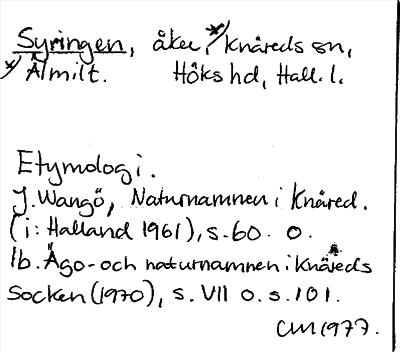 Syringen, åker, */ Knäreds sn,
*/ Älmilt. Höks hd, Hall. l.
Etymologi.
J. Wangö, Naturnamnen i Knäred.
(i: Halland 1961), s. 60. o.
Ib. Ägo- och naturnamnen i Knäreds
Socken (1970), s. VII o. s. 101.
CM 1977.